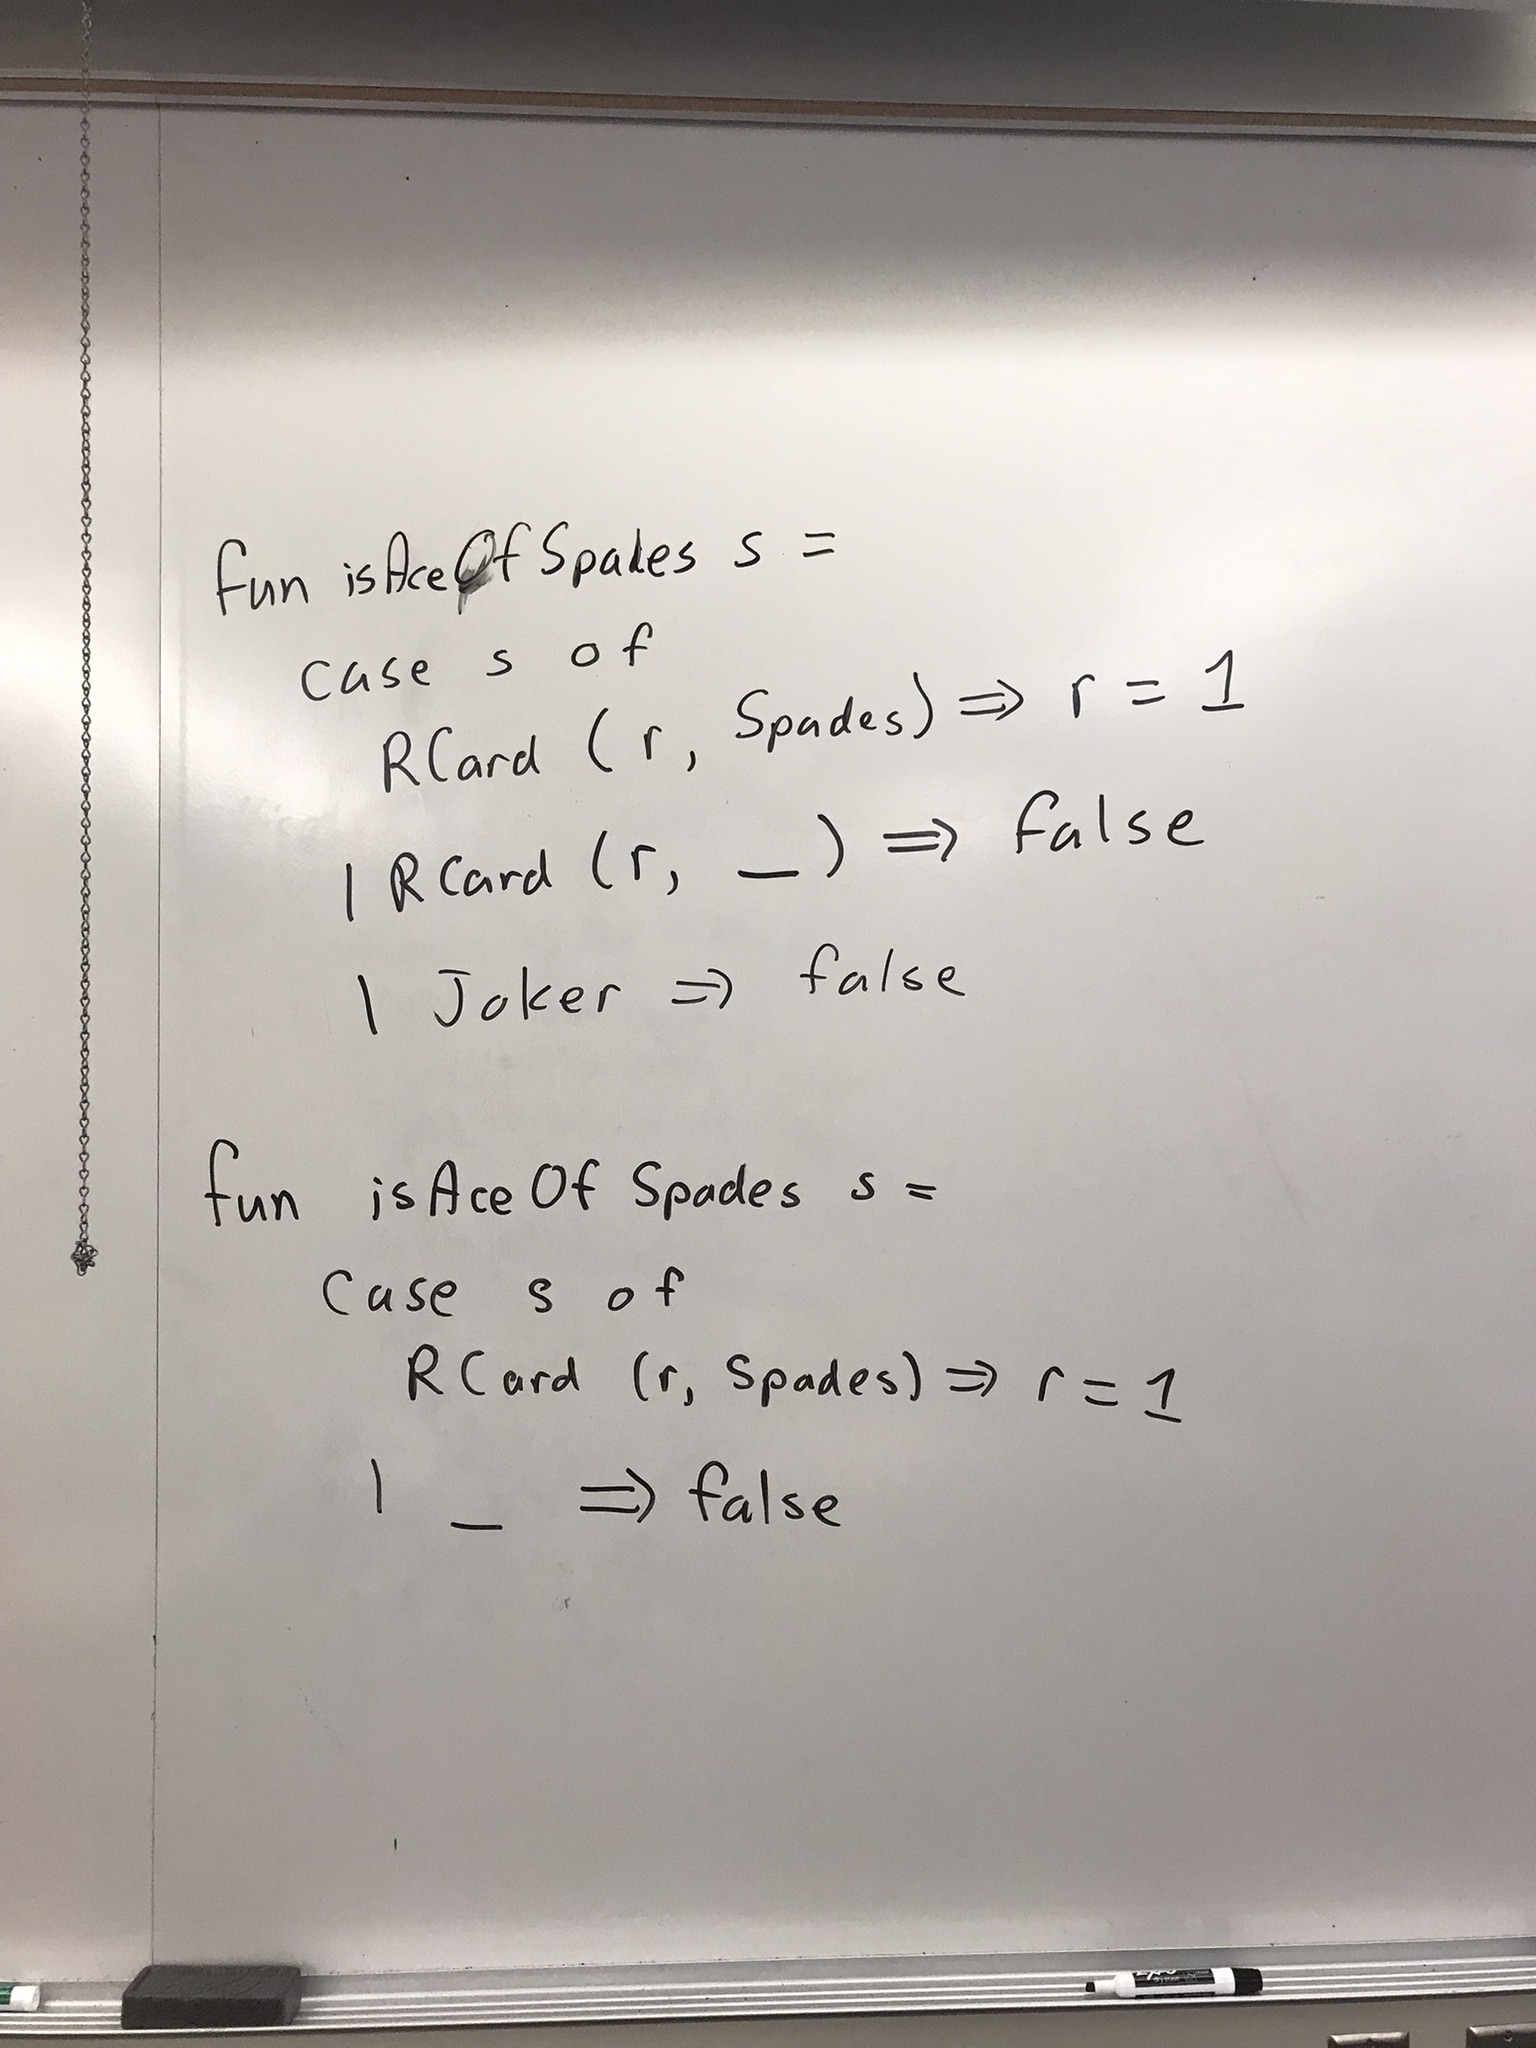 fun isAceOfSpades s =
case s of
RCard (r, Spades) => r = 1
| RCard (r, _) => false
| Joker => false
fun isAceOfSpades s =
case s of
RCard (r, Spades) => r = 1
| _ => false
EXPO